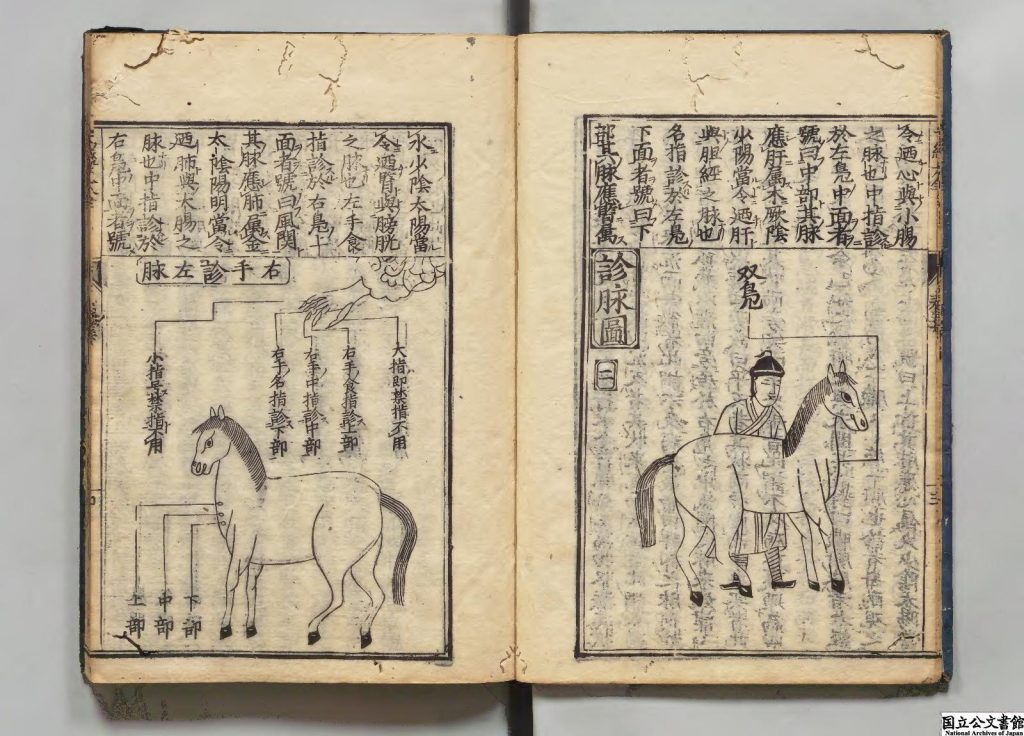 令廼心與小腸
之脉也中指診
於左鳧中面者
號曰中部其脉
應肝属木厥陰
少陽當令廼肝
與胆經之脉也
名指診於左鳧
下面者號曰下
部其脉應腎属
診脉圖
二
双鳧
三
水少陰太陽當
令廼腎與膀胱
之脉也左手食
指診於右鳧上
面者號曰風関
其脉應肺属金
太陰陽明當令
廼肺與大腸之
脉也中指診於
右鳧中面者號
右手診左脉
大指即禁指不用
右手食指診上部
右手中指診中部
右手名指診下部
小指号禁指不用
下部
中部
上部
国立公文書館
National Archives of Japan